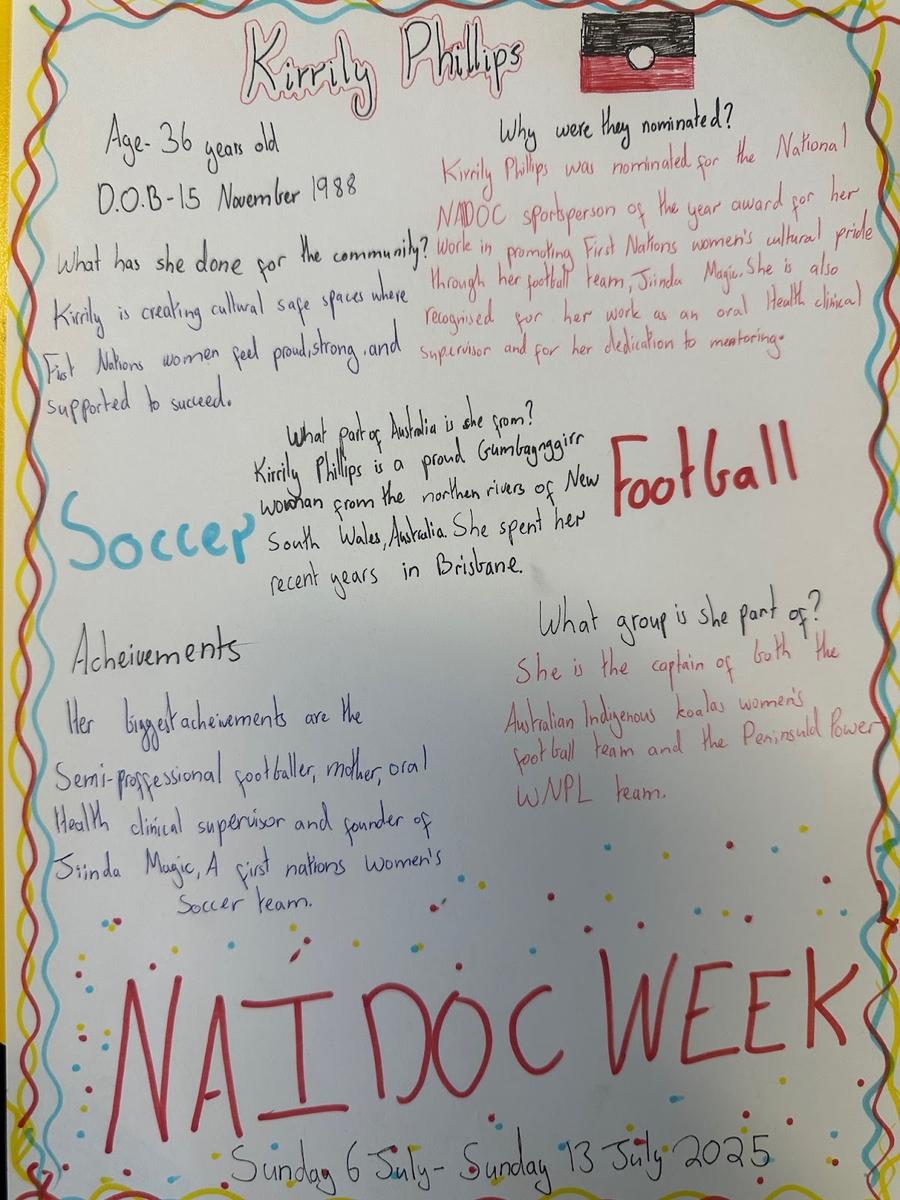 Kirrily Phillips
Age- 36 years old
D.O.B-15 November 1988
What has she done for the community?
Kirrily is creating cultural safe spaces where
First Nations women feel proud,strong,and
supported to succeed.
Why were they nominated?
Kirrily Phillips was nominated for the National
NADOC sportsperson of the year award for her
work in promoting First Nations women's cultural pride
through her football team, Jiinda Magic. She is also
recognised for her work as an oral Health clinical
supervisor and for her dedication to mentoring.
What part of Australia is she from?
Kirrily Phillips is a proud Gumbaynggirr
woman from the northen rivers of New
South Wales, Australia. She spent her
recent years in Brisbane.
Soccer
Football
Acheivements
Her biggest acheivements are the
Semi-proffessional footballer, mother, oral
Health clinical supervisor and founder of
Jiinda Magic, A first nations women's
Soccer team.
What group is she part of?
She is the captain of both the
Australian Indigenous koalas women's
football team and the Peninsuld Power
WNPL team.
NAIDOC WEEK
Sunday 6 July- Sunday 13 July 2025